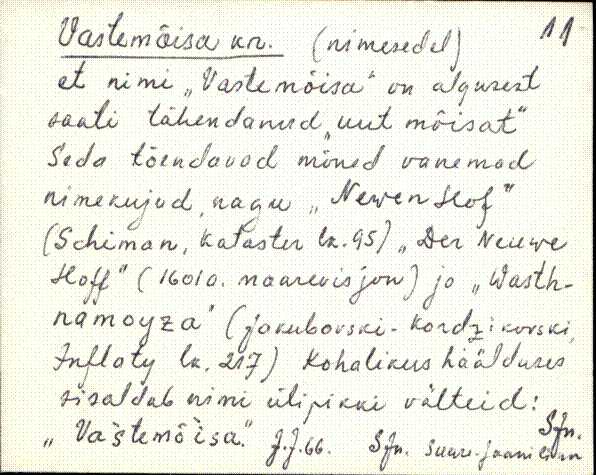 Vastemõisa kr. (nimesedel) 11
et nimi „Vastemõisa" on algusest
saati tähendanud „uut mõisat"
Seda tõendavad mõned vanemad
nimekujud, nagu „Newen Hof"
(Schiman, Kataster lk. 95) „Der Neuwe
Hoff" (1601 a. maarevisjon) ja „Wasth-
namoyza" (Jakubovski-Kordzikovski,
Inflaty lk. 217) Kohalikus häälduses
sisaldab nimi ülipikki välteid:
„Va`stemõ`isa". J.J. 66. Sjn. Suure-Jaani
Sjn.